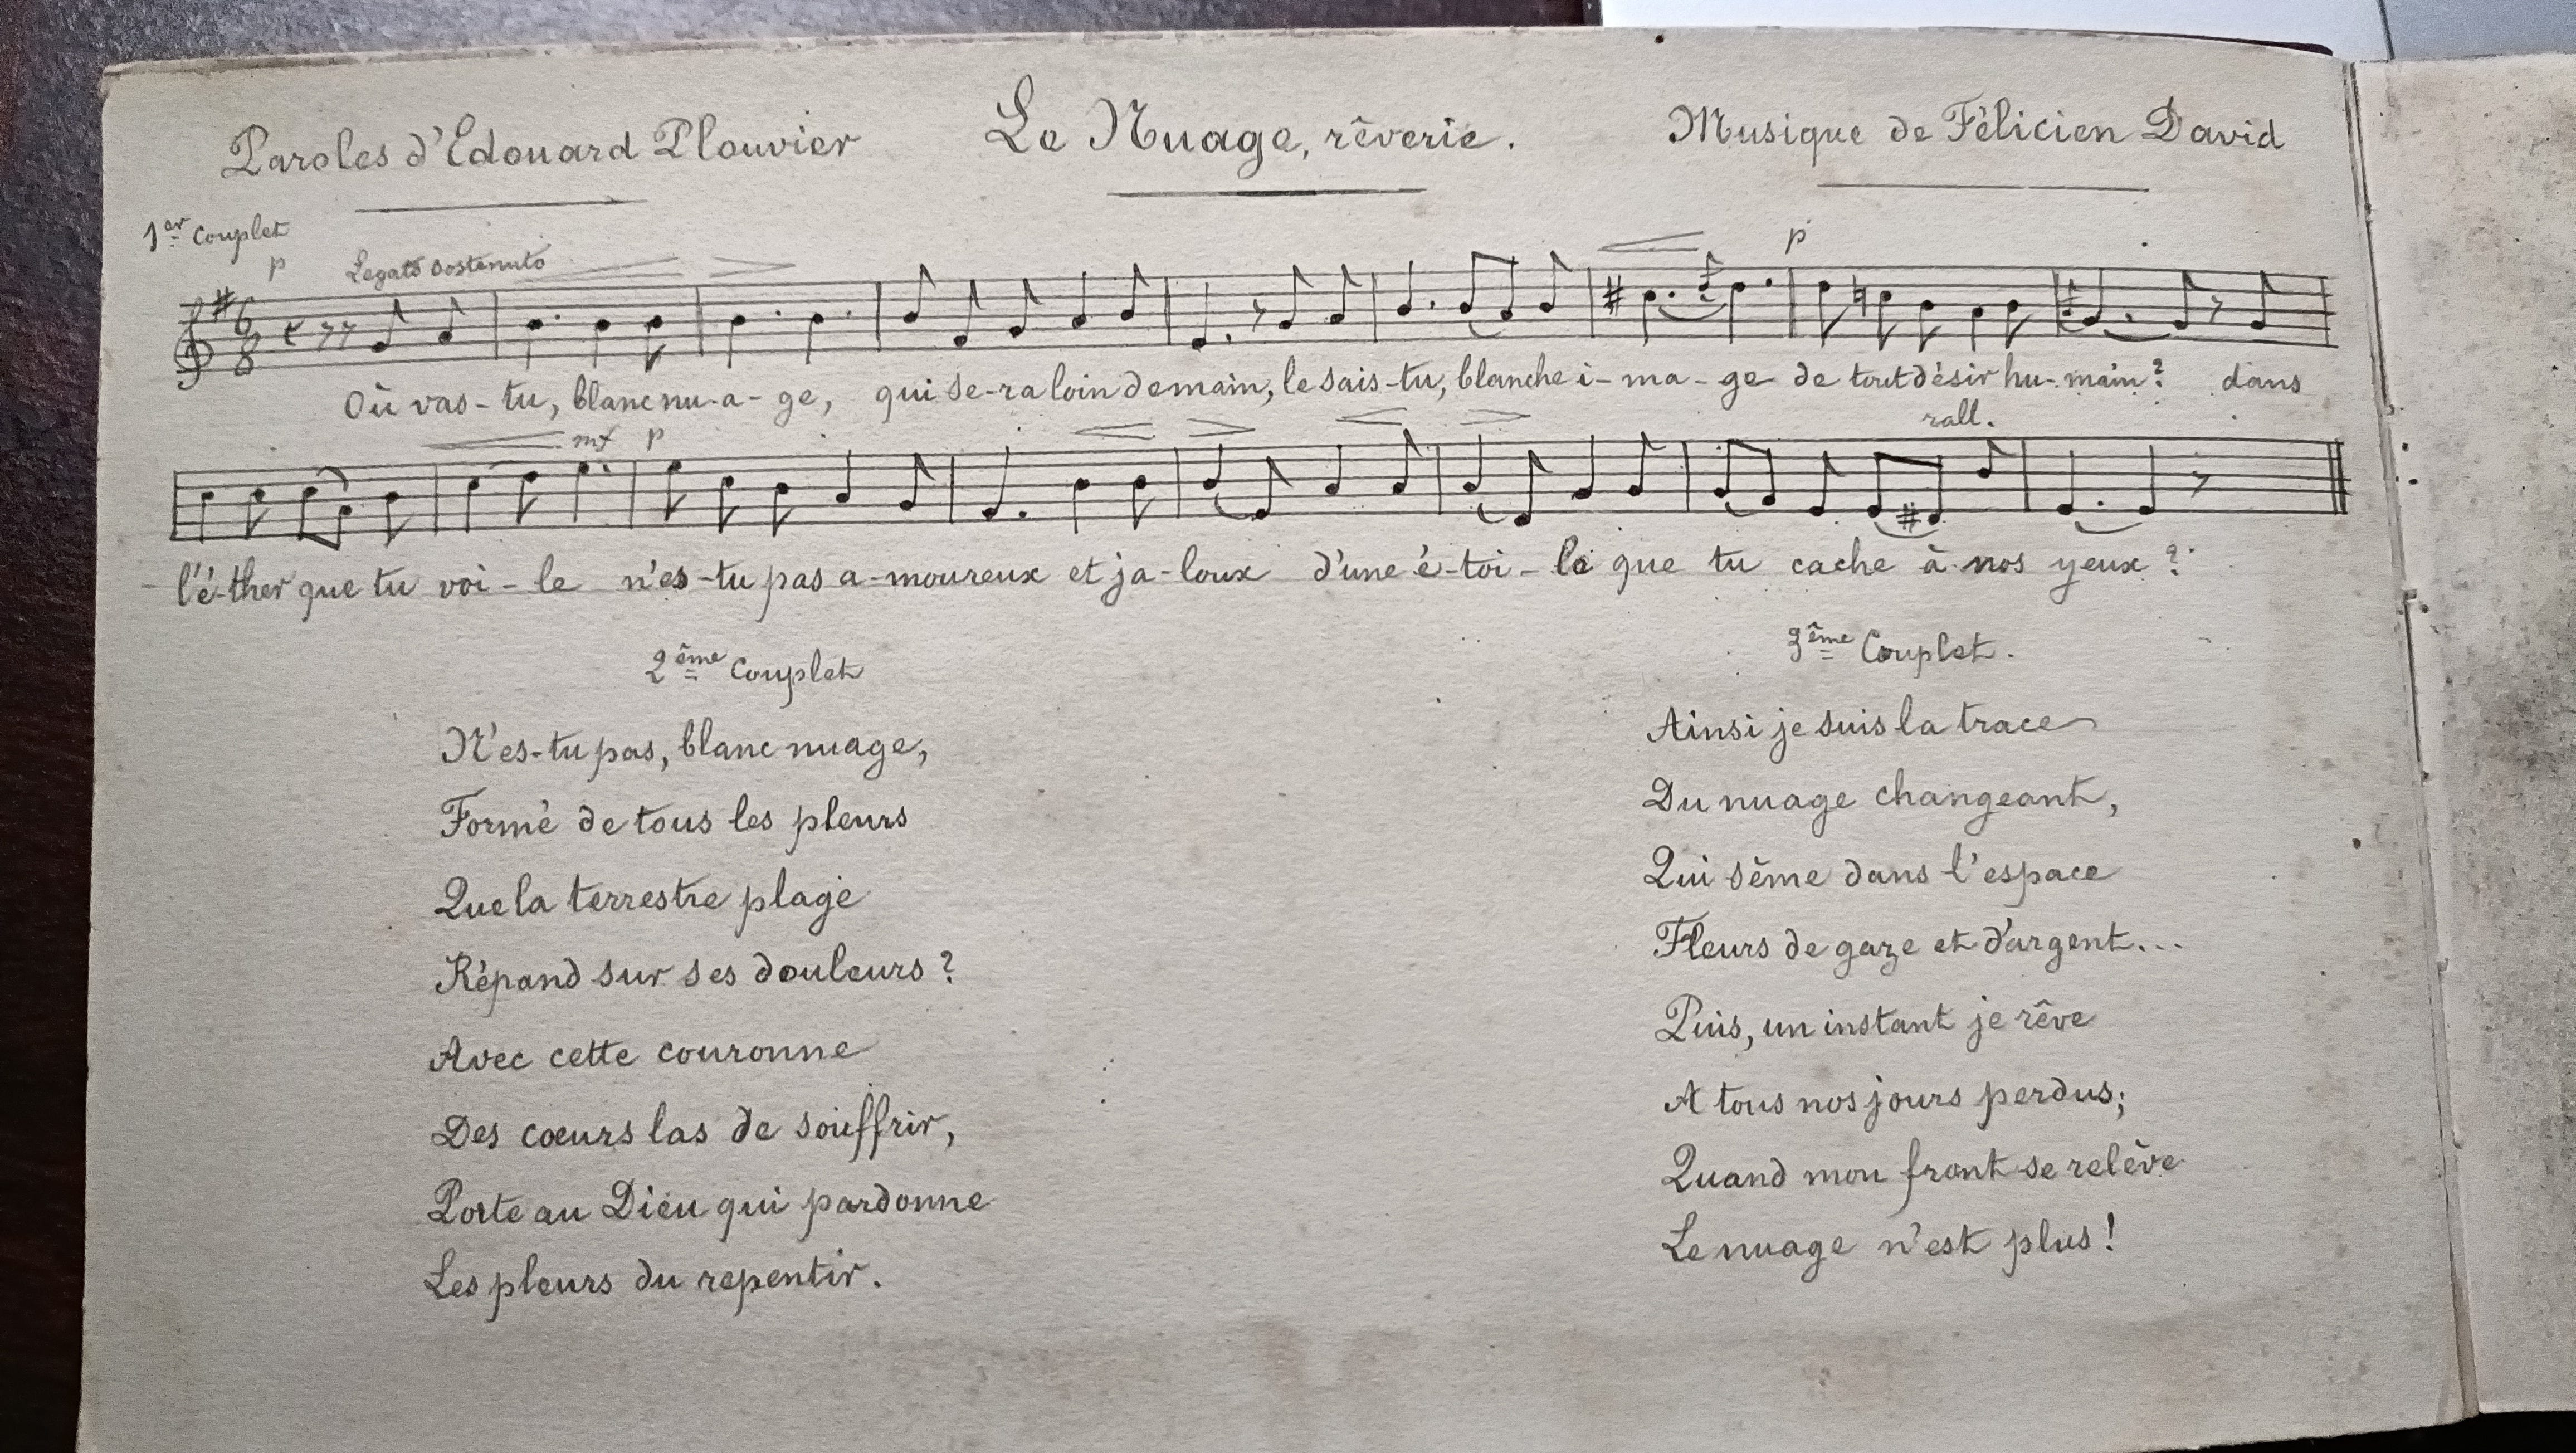 Paroles d'Edouard Plouvier
Le Nuage, rêverie.
Musique de Félicien David
1er Couplet
p Legato sostenuto p
6
8
Où vas-tu, blanc nu-a-ge, qui se-ra loin demain, le sais-tu, blanche i-ma-ge de tout désir hu-main? dans
mf p rall.
l'é-ther que tu voi-le n'es-tu pas a-moureux et ja-loux d'une é-toi-le que tu cache à nos yeux?
2ème Couplet
N'es-tu pas, blanc nuage,
Formé de tous les pleurs
Que la terrestre plage
Répand sur ses douleurs?
Avec cette couronne
Des cœurs las de souffrir,
Porte au Dieu qui pardonne
Les pleurs du repentir.
3ème Couplet.
Ainsi je suis la trace
Du nuage changeant,
Qui sème dans l'espace
Fleurs de gaze et d'argent...
Puis, un instant je rêve
A tous nos jours perdus;
Quand mon front se relève
Le nuage n'est plus!